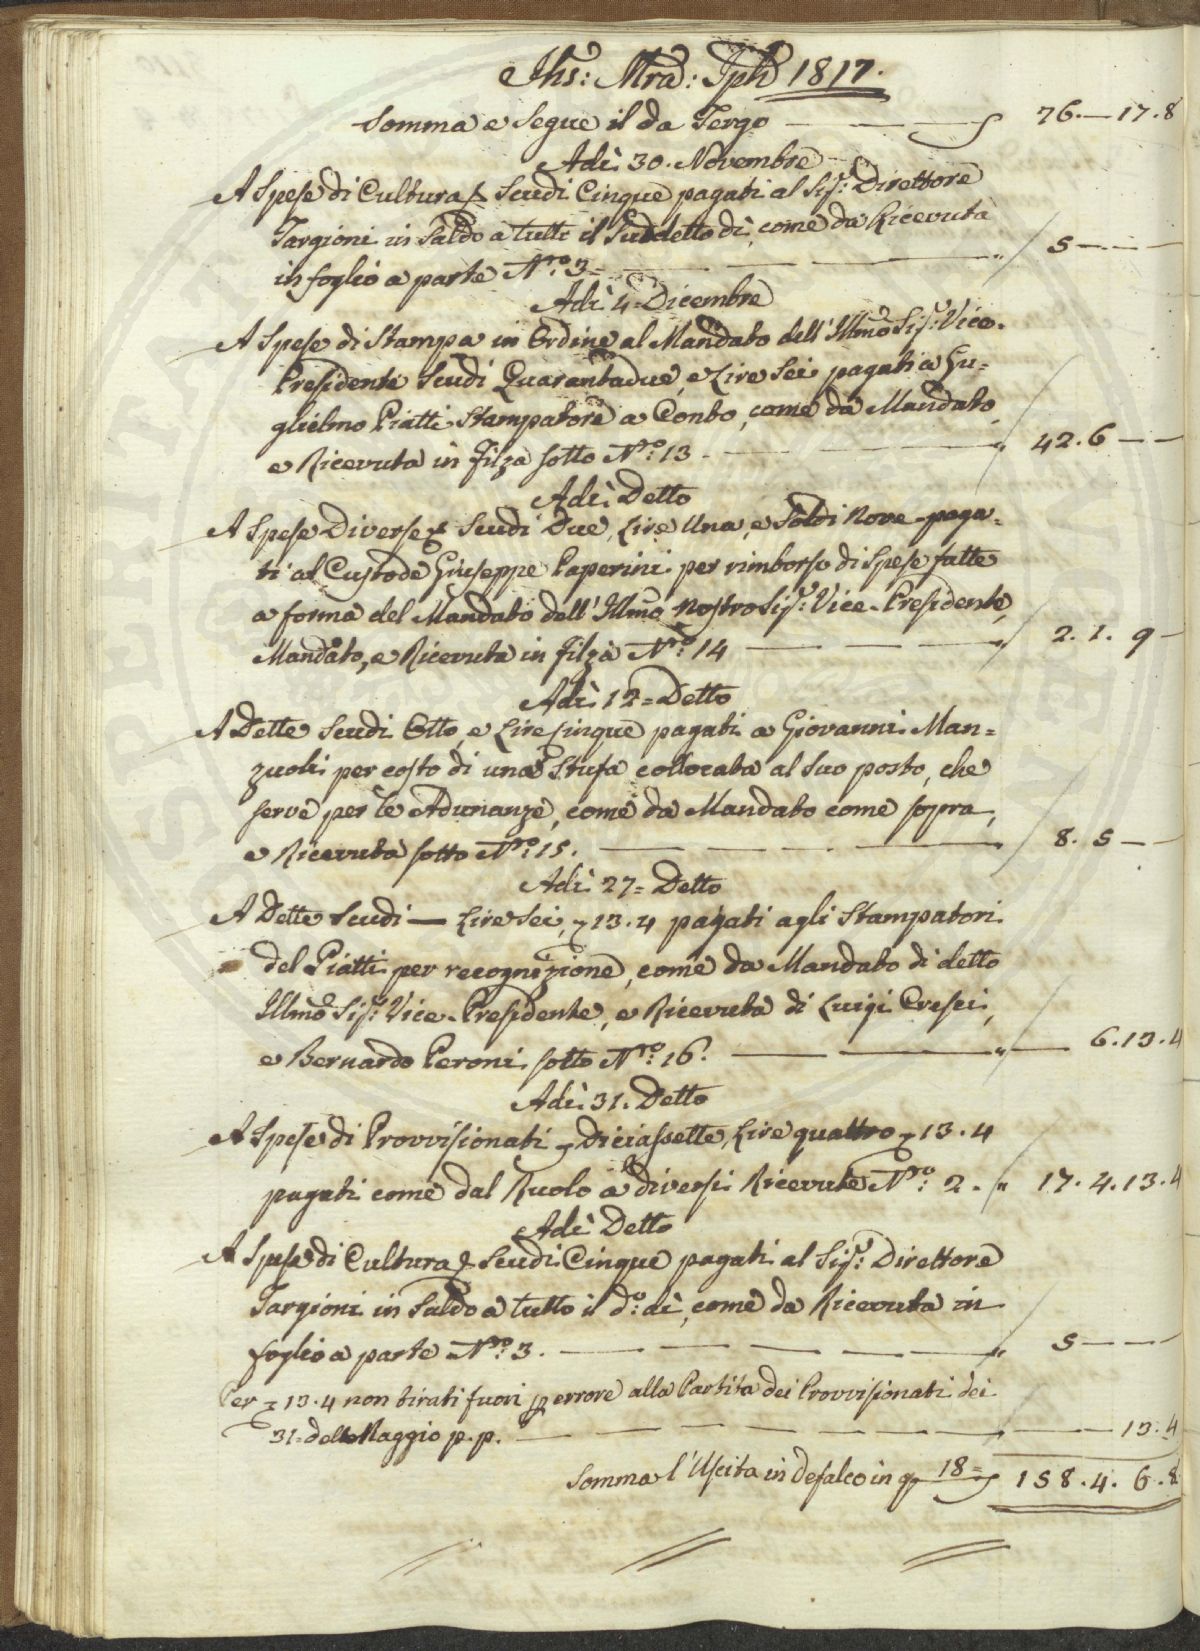 Jhs: Mra: Jph 1817.
Somma e Segue il da Tergo — — — 76. — 17. 8
Adì. 30. Novembre
A Spese di Cultura Scudi Cinque pagati al Sig.: Direttore
Targioni in Saldo a tutto il Suddetto dì, come da Ricevuta
in foglio a parte N.ro 3 = — — — " 5 — — —
Adì 4 = Dicembre
A Spese di Stampa in Ordine al Mandato dell' Illmo Sig.: Vice-
Presidente Scudi Quarantadue, e Lire Sei pagati a Gu=
glielmo Piatti Stampatore a Conto, come da Mandato,
e Ricevuta in Filza sotto N.ro 13 — — — " 42. 6 — —
Adì Detto
A Spese Diverse Scudi Due, Lire Una, e Soldi Nove paga=
ti al Custode Giuseppe Paperini per rimborso di Spese fatte
a forma del Mandato dell' Illmo Nostro Sig.: Vice-Presidente,
Mandato, e Ricevuta in Filza N.ro 14 — — — " 2. 1. 9 —
Adì. 12 = Detto
A Dette Scudi Otto, e Lire Cinque pagati a Giovanni Man=
zuoli per costo di una Stufa collocata al Suo posto, che
serve per le Adunanze, come da Mandato come sopra,
e Ricevuta sotto N.ro 15. — — — 8. 5 — —
Adì. 27 = Detto
A Dette Scudi — Lire Sei, 13. 4 pagati agli Stampatori
del Piatti per recognizione, come da Mandato di detto
Illmo Sig.: Vice-Presidente, e Ricevuta di Luigi Cresci,
e Bernardo Peroni sotto N.ro 16. — — " — 6. 13. 4
Adì. 31. Detto
A Spese di Provvisionati Diciassette, Lire quattro 13. 4
pagati come dal Ruolo a diversi Ricevute N.ro 2. " 17. 4. 13. 4
Adì Detto
A Spese di Cultura Scudi Cinque pagati al Sig.: Direttore
Targioni in Saldo a tutto il d.o dì, come da Ricevuta in
foglio a parte N.ro 3. — — — " 5 — — —
Per 13. 4 non tirati fuori p errore alla Partita dei Provvisionati dei
31 = detto Maggio p. p. — — — 13. 4
Somma l'Uscita in defalco in 18 = 158. 4. 6. 8